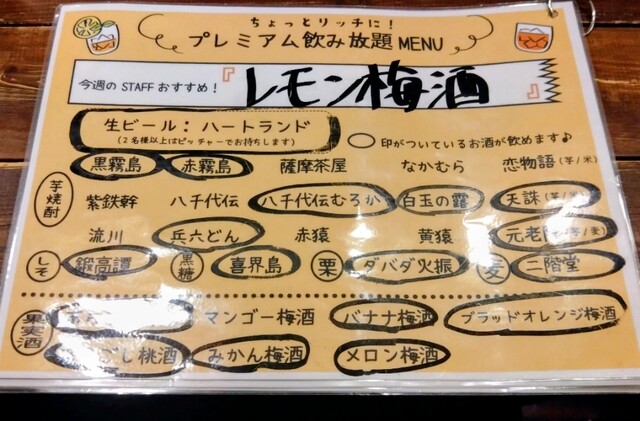 ちょっとリッチに！
プレミアム飲み放題 MENU
今週の STAFF おすすめ！『レモン梅酒』
生ビール：ハートランド
(2名様以上はピッチャーでお持ちします)
○印がついているお酒が飲めます♪
黒霧島 赤霧島 薩摩茶屋 なかむら 恋物語(芋/米)
芋焼酎 紫鉄幹 八千代伝 八千代伝むろか 白玉の露 天誅(芋/米)
流川 兵六どん 赤猿 黄猿 元老院(芋/麦)
しそ 鍛高譚 黒糖 喜界島 栗 ダバダ火振 麦 二階堂
果実酒 マンゴー梅酒 バナナ梅酒 ブラッドオレンジ梅酒
ごし桃酒 みかん梅酒 メロン梅酒